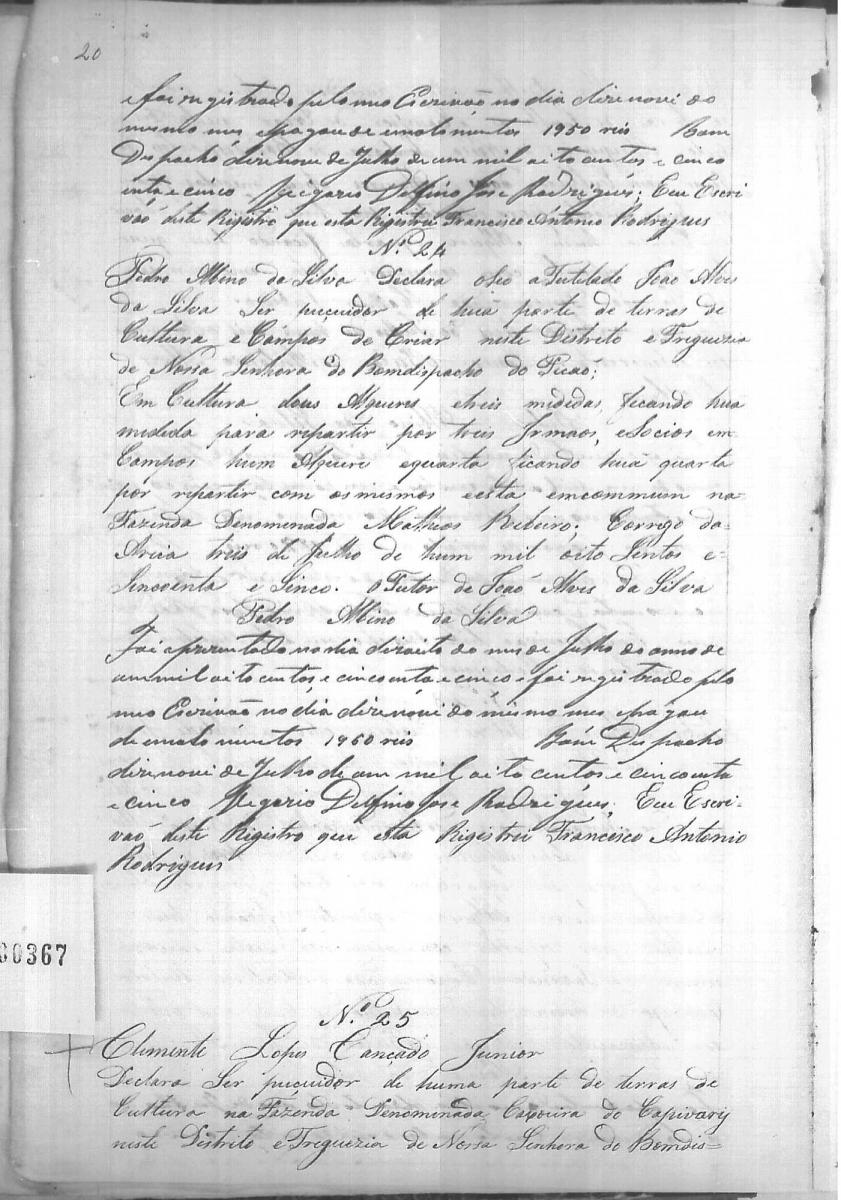 20
e foi registrado pelo meu Escrivão no dia dizenove do
mesmo mes e pagou de emolumentos 1950 reis Bom
Despacho dizenove de Julho de um mil oito centos e cinco
enta e cinco Vigario Delfino Jose Rodrigues; E eu Escri
vaõ deste Rigistro que esta Rigistrei Francisco Antonio Rodrigues
N.º 24
Pedro Albino da Silva Declara o Seo a Tutelado Joaõ Alves
da Silva Ser puçuidor de huã parte de terras de
Cultura e Campos de Criar neste Distrito e Freguezia
de Nossa Senhora do Bomdispacho do Picaõ;
Em Cultura dous Alqueres e treis mididas, ficando hua
midida para repartir por treis Irmaos, e Socios em
Campos hum Alquere e quarta ficando huã quarta
por repartir com os mesmos e esta em commum na
Fazenda Denomenada Matheos Ribeiro; Corrego da
Areia treis de Julho de hum mil oito Sentos e=
Sincoenta e Sinco. o Tutor de Joaõ Alves da Silva
Pedro Albino da Silva
Foi aprezentado no dia dizoito do mes de Julho do anno de
um mil oito centos e cincoenta e cinco e foi registrado pelo
meu Escrivão no dia dizenove do mesmo mes e pagou
de emolumentos 1960 reis Bom Despacho
dizenove de Julho de um mil oito centos e cincoenta
e cinco Vegario Delfino Jose Rodrigues; E eu Escri-
vaõ deste Rigistro que esta Rigistrei Francisco Antonio
Rodrigues
00367
N.º 25
Clemente Lopes Cançado Junior
Declara Ser puçuidor de huma parte de terras de
Cultura na Fazenda Denomenada Caxoeira do Capivary
neste Distrito e Freguezia de Nossa Senhora do Bomdis=